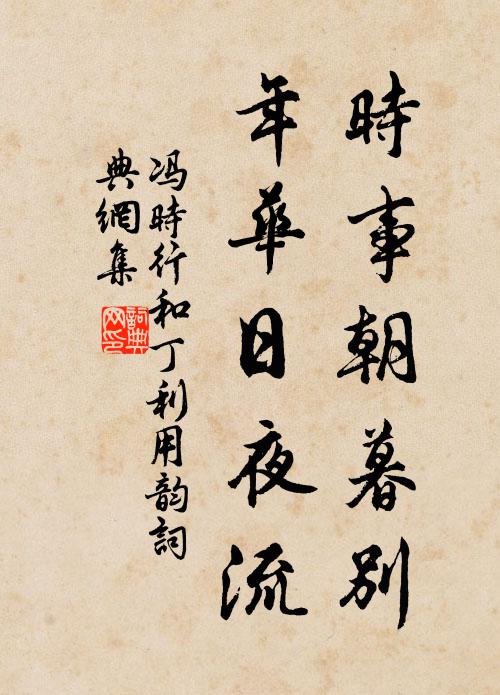 時事朝暮別
年華日夜流
冯時行和丁利用韵詞
典網集
詞典网印